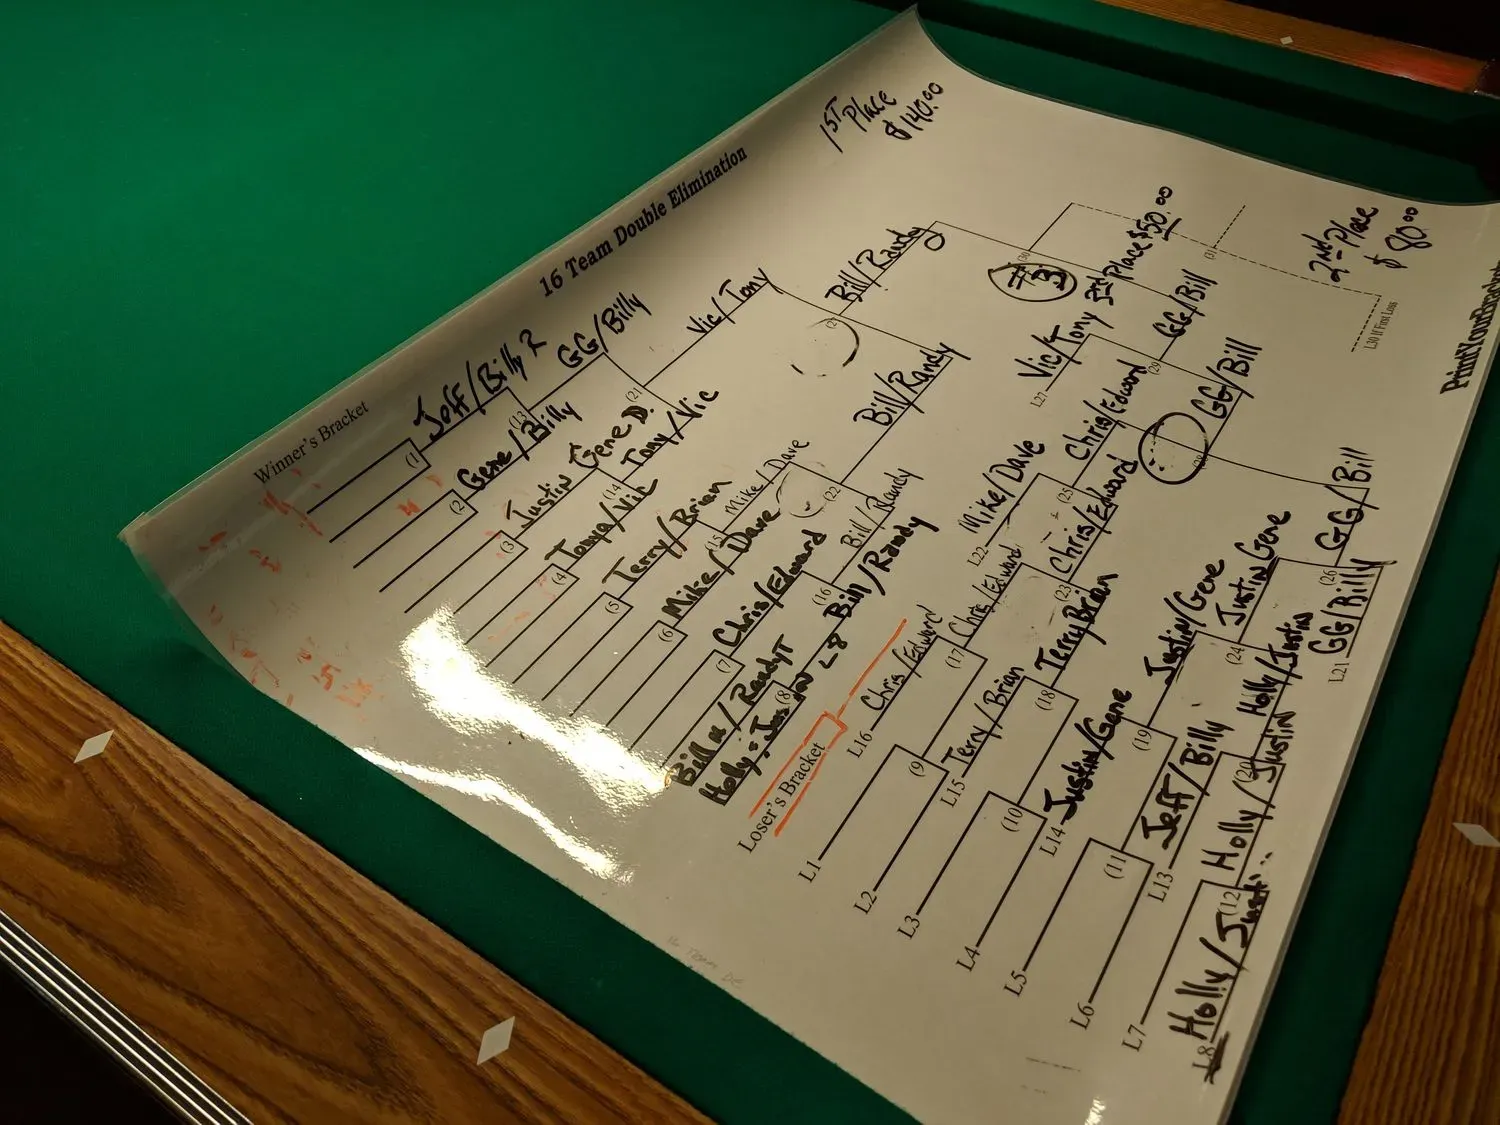 16 Team Double Elimination
1ST Place
$140.00
2nd Place
$80.00
Winner's Bracket
Jeff/Billy R
(1
Gene/Billy
(2
(13
GG/Billy
Justin Gene D.
(3
Tanya/Vic
(4
(14
Tony/Vic
(21
Vic/Tony
Terry/Brian
(5
Mike/Dave
(6
(15
Mike/Dave
Chris/Edward
(7
Bill/Randy
(8
(16
Bill/Randy
(22
Bill/Randy
Bill/Randy
#3
3rd Place $50.00
(30
(31
L30 If First Loss
PrintYour
Loser's Bracket
L8
L16
Chris/Edward
L1
L2
(9
(17
Chris/Edward
L15
Terry/Brian
L3
L4
(10
(18
Terry Brian
(23
Chris/Edward
L22
Mike/Dave
(25
Chris/Edward
L27
Vic/Tony
(29
GG/Bill
GG/Bill
L14
Justin/Gene
L5
L6
(11
(19
Justin/Gene
L13
Jeff/Billy
L7
L8
Holly/Justin
(12
Holly/Justin
(20
Holly/Justin
(24
Justin Gene
L21
GG/Billy
(26
GG/Bill